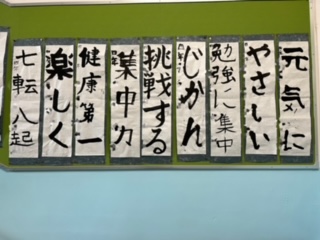 元気に
やさしい
勉強に集中
じかん
挑戦する
集中力
健康第一
楽しく
七転八起